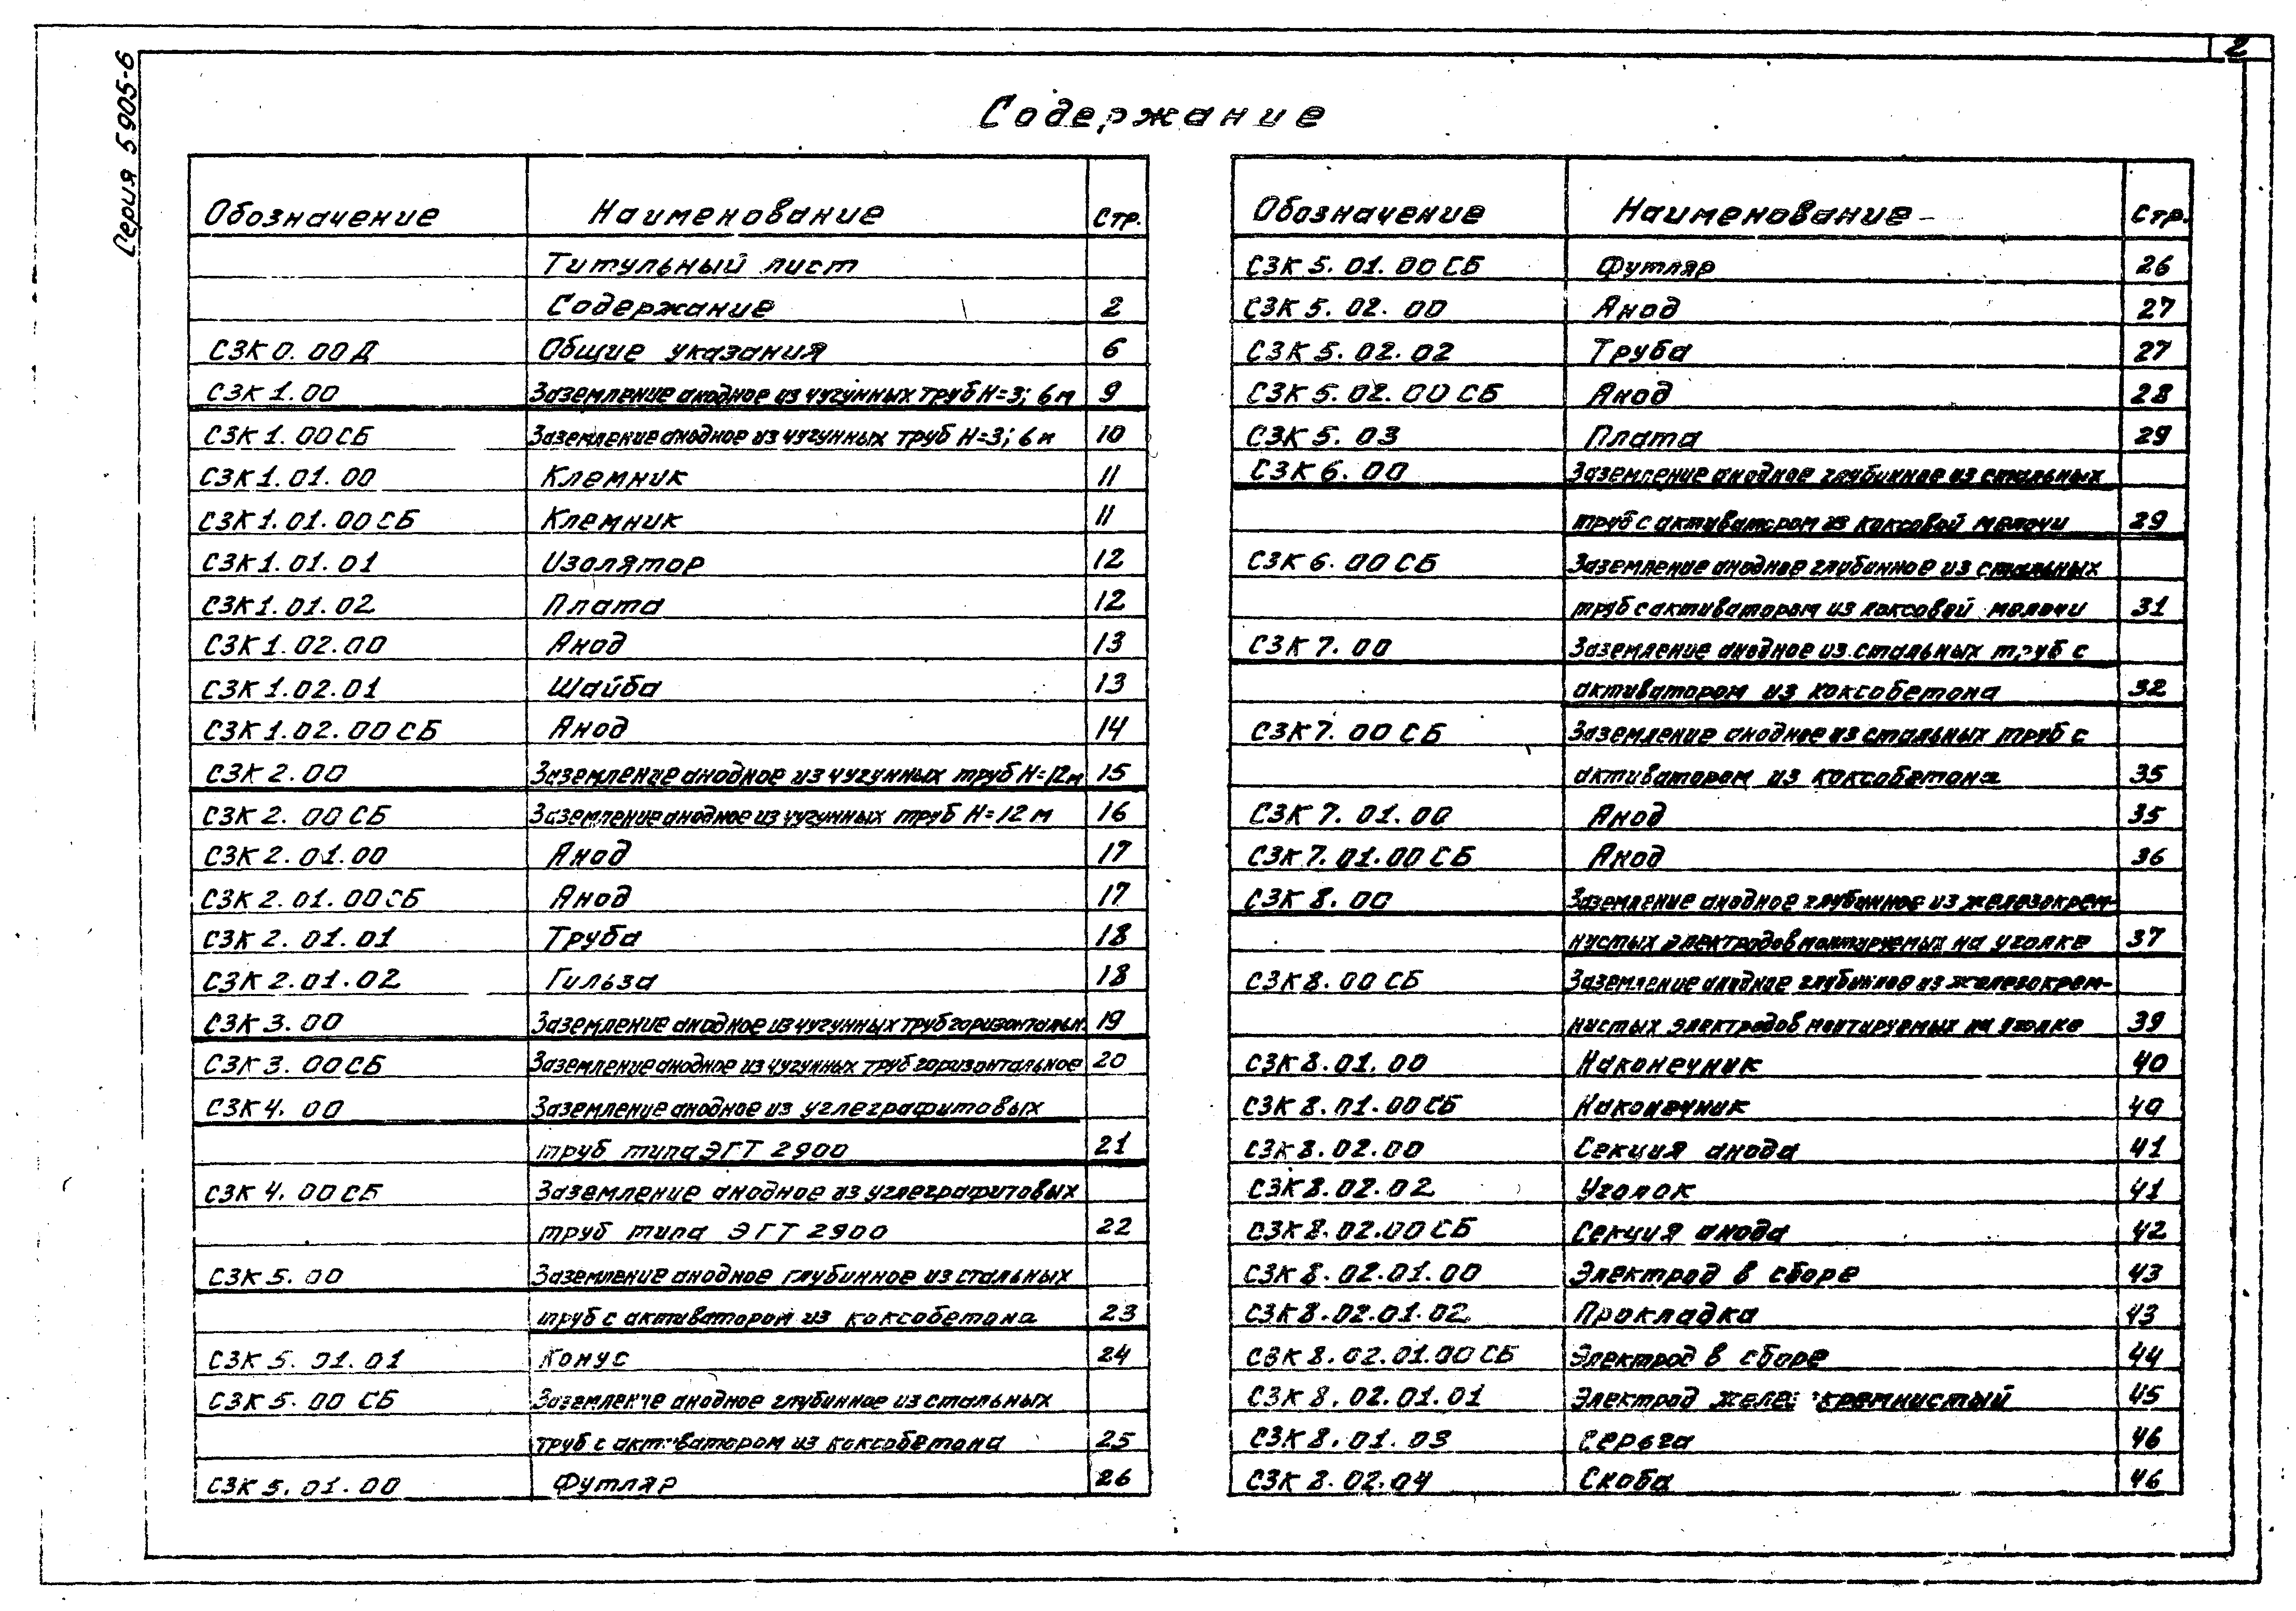 2
Серия 5 905-6
Содержание
Обозначение Наименование Стр.
Титульный лист
Содержание 2
СЗК 0. 00 Д Общие указания 6
СЗК 1. 00 Заземление анодное из чугунных труб Н=3; 6м 9
СЗК 1. 00 СБ Заземление анодное из чугунных труб Н=3; 6м 10
СЗК 1. 01. 00 Клемник 11
СЗК 1. 01. 00 СБ Клемник 11
СЗК 1. 01. 01 Изолятор 12
СЗК 1. 01. 02 Плата 12
СЗК 1. 02. 00 Анод 13
СЗК 1. 02. 01 Шайба 13
СЗК 1. 02. 00 СБ Анод 14
СЗК 2. 00 Заземление анодное из чугунных труб Н=12м 15
СЗК 2. 00 СБ Заземление анодное из чугунных труб Н=12 м 16
СЗК 2. 01. 00 Анод 17
СЗК 2. 01. 00 СБ Анод 17
СЗК 2. 01. 01 Труба 18
СЗК 2. 01. 02 Гильза 18
СЗК 3. 00 Заземление анодное из чугунных труб горизонтальн. 19
СЗК 3. 00 СБ Заземление анодное из чугунных труб горизонтальное 20
СЗК 4. 00 Заземление анодное из углеграфитовых
труб типа ЭГТ 2900 21
СЗК 4. 00 СБ Заземление анодное из углеграфитовых
труб типа ЭГТ 2900 22
СЗК 5. 00 Заземление анодное глубинное из стальных
труб с активатором из коксобетона 23
СЗК 5. 01. 01 Конус 24
СЗК 5. 00 СБ Заземление анодное глубинное из стальных
труб с активатором из коксобетона 25
СЗК 5. 01. 00 Футляр 26
Обозначение Наименование Стр.
СЗК 5. 01. 00 СБ Футляр 26
СЗК 5. 02. 00 Анод 27
СЗК 5. 02. 02 Труба 27
СЗК 5. 02. 00 СБ Анод 28
СЗК 5. 03 Плата 29
СЗК 6. 00 Заземление анодное глубинное из стальных
труб с активатором из коксовой мелочи 29
СЗК 6. 00 СБ Заземление анодное глубинное из стальных
труб с активатором из коксовой мелочи 31
СЗК 7. 00 Заземление анодное из стальных труб с
активатором из коксобетона 32
СЗК 7. 00 СБ Заземление анодное из стальных труб с
активатором из коксобетона 35
СЗК 7. 01. 00 Анод 35
СЗК 7. 01. 00 СБ Анод 36
СЗК 8. 00 Заземление анодное глубинное из железокрем-
нистых электродов монтируемых на уголке 37
СЗК 8. 00 СБ Заземление анодное глубинное из железокрем-
нистых электродов монтируемых на уголке 39
СЗК 8. 01. 00 Наконечник 40
СЗК 8. 01. 00 СБ Наконечник 40
СЗК 8. 02. 00 Секция анода 41
СЗК 8. 02. 02 Уголок 41
СЗК 8. 02. 00 СБ Секция анода 42
СЗК 8. 02. 01. 00 Электрод в сборе 43
СЗК 8. 02. 01. 02 Прокладка 43
СЗК 8. 02. 01. 00 СБ Электрод в сборе 44
СЗК 8. 02. 01. 01 Электрод 45
СЗК 8. 01. 03 Серьга 46
СЗК 8. 02. 04 Скоба 46